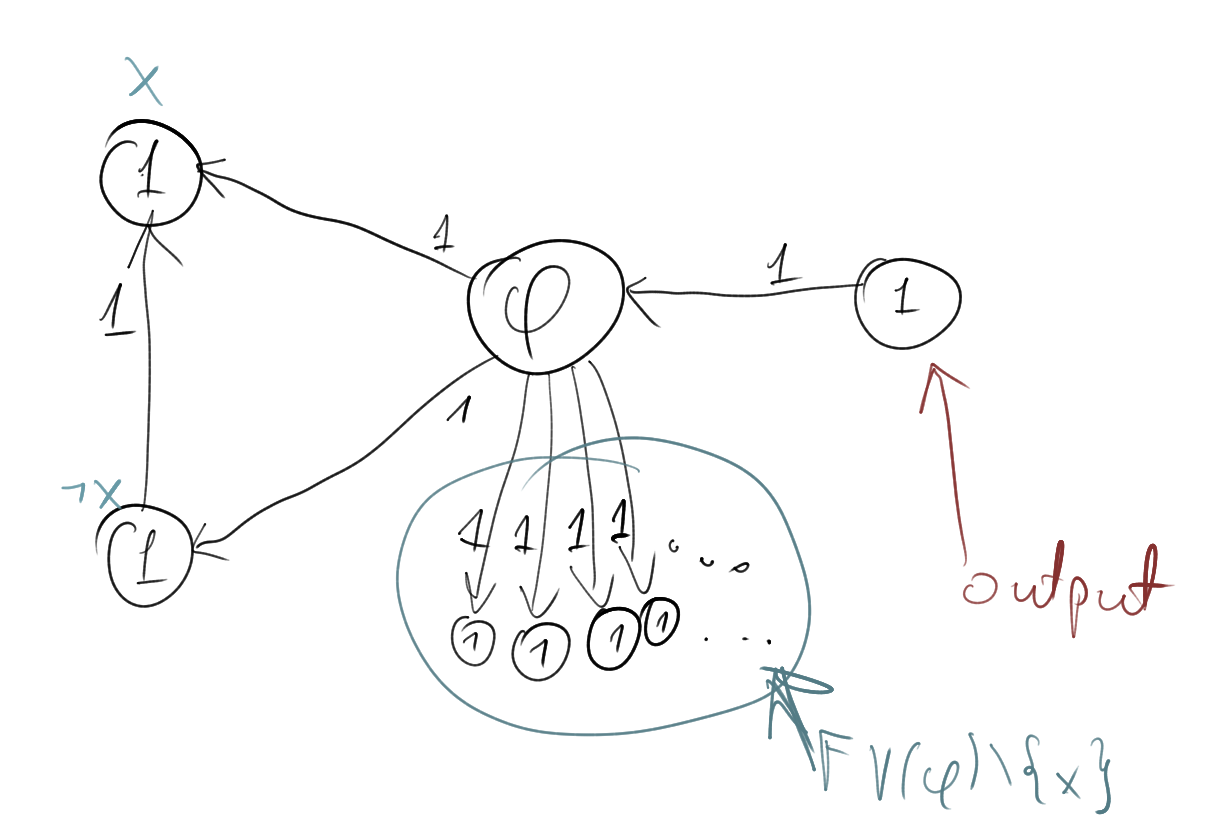 x
1
1
1
1
φ
1
1
¬x
1
1 1 1 1 ...
1 1 1 1 ...
output
FV(φ)\{x}